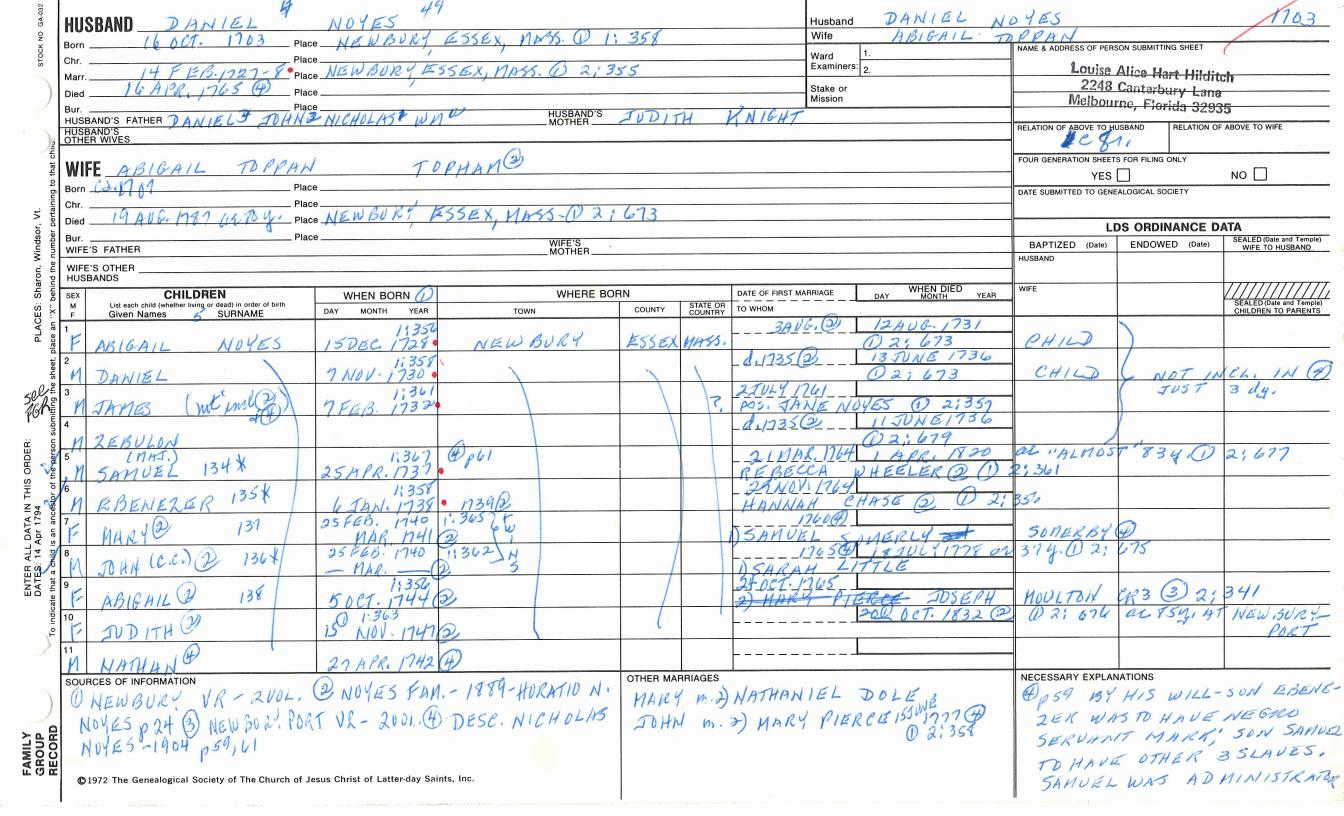 STOCK NO GA-032
HUSBAND DANIEL 4 NOYES 49
Born 16 OCT. 1703 Place NEWBURY, ESSEX, MASS. ① 1:358
Chr. Place
Marr. 14 FEB. 1727-8 Place NEWBURY, ESSEX, MASS. ① 2:355
Died 16 APR. 1765 ④ Place
Bur. Place
HUSBAND'S FATHER DANIEL3 JOHN2 NICHOLAS1 WM HUSBAND'S MOTHER JUDITH KNIGHT
HUSBAND'S OTHER WIVES
Husband DANIEL NOYES 1703
Wife ABIGAIL TOPPAN
Ward Examiners: 1.
2.
Stake or Mission
NAME & ADDRESS OF PERSON SUBMITTING SHEET
Louise Alice Hart Hilditch
2248 Canterbury Lane
Melbourne, Florida 32935
RELATION OF ABOVE TO HUSBAND RELATION OF ABOVE TO WIFE
FOUR GENERATION SHEETS FOR FILING ONLY
YES NO
DATE SUBMITTED TO GENEALOGICAL SOCIETY
WIFE ABIGAIL TOPPAN TOPHAM ②
Born ca. 1707 Place
Chr. Place
Died 19 AUG. 1787 ae 80y. Place NEWBURY, ESSEX, MASS. ① 2:673
Bur. Place
WIFE'S FATHER WIFE'S MOTHER
WIFE'S OTHER HUSBANDS
LDS ORDINANCE DATA
BAPTIZED (Date) ENDOWED (Date) SEALED (Date and Temple) WIFE TO HUSBAND
HUSBAND
WIFE
SEALED (Date and Temple) CHILDREN TO PARENTS
SEX M F
CHILDREN
List each child (whether living or dead) in order of birth
Given Names 5 SURNAME
WHEN BORN ①
DAY MONTH YEAR
WHERE BORN
TOWN COUNTY STATE OR COUNTRY
DATE OF FIRST MARRIAGE
TO WHOM
WHEN DIED
DAY MONTH YEAR
1 1:356 3 AUG. ② 12 AUG. 1731
F ABIGAIL NOYES 15 DEC. 1728 NEWBURY ESSEX MASS. ① 2:673 CHILD
2 1:358 d. 1735 ② 13 JUNE 1736
M DANIEL 7 NOV. 1730 ① 2:673 CHILD NOT INCL. IN ②
JUST 3 dy.
3 1:361 2 JULY 1761
M JAMES (not incl ② 7 FEB. 1732 ? pos. JANE NOYES ① 2:359
4 d. 1735 ② 11 JUNE 1736
M ZEBULON ① 2:679
5 (MAJ.) 1:367 ④ p61 21 MAR. 1764 1 APR. 1820 ae "ALMOST" 83y. ① 2:677
M SAMUEL 134X 25 APR. 1737 REBECCA WHEELER ② ① 2:361
6 1:358 29 NOV. 1764
M EBENEZER 135X 6 JAN. 1738 1739 ② HANNAH CHASE ② ① 2:356
7 25 FEB. 1740 1:365 TWINS 1760 ④
F MARY ② 137 MAR. 1741 ② 1) SAMUEL SOMERLY SOMERBY ④
8 25 FEB. 1740 1:362 1765 ④ 18 JULY 1778 or 37y. ① 2:675
M JOHN (C.C.) ② 136X — MAR. — ② 1) SARAH LITTLE
9 1:356 2 OCT. 1765
F ABIGAIL ② 138 5 OCT. 1744 ② 2) MARY PIERCE JOSEPH MOULTON CR3 ③ 2:341
10 ① 1:363 20 OCT. 1832 ② ① 2:676 ae 85y. AT NEWBURY-
F JUDITH ② 15 NOV. 1747 ② PORT
11
M NATHAN ④ 27 APR. 1742 ④
SOURCES OF INFORMATION
① NEWBURY VR - 2 VOL. ② NOYES FAM. - 1889 - HORATIO N.
NOYES p24 ③ NEWBURYPORT VR - 2 VOL. ④ DESC. NICHOLAS
NOYES - 1904 p59,61
©1972 The Genealogical Society of The Church of Jesus Christ of Latter-day Saints, Inc.
OTHER MARRIAGES
MARY m. 2) NATHANIEL DOLE
JOHN m. 2) MARY PIERCE 15 JUNE 1777 ④
① 2:358
NECESSARY EXPLANATIONS
④ p59 BY HIS WILL - SON EBENE-
ZER WAS TO HAVE NEGRO
SERVANT MARK; SON SAMUEL
TO HAVE OTHER 3 SLAVES.
SAMUEL WAS ADMINISTRATOR
FAMILY GROUP RECORD
ENTER ALL DATA IN THIS ORDER:
DATES: 14 Apr 1794
PLACES: Sharon, Windsor, Vt.
To indicate that a child is an ancestor of the person submitting the sheet, place an "X" behind the number pertaining to that child.